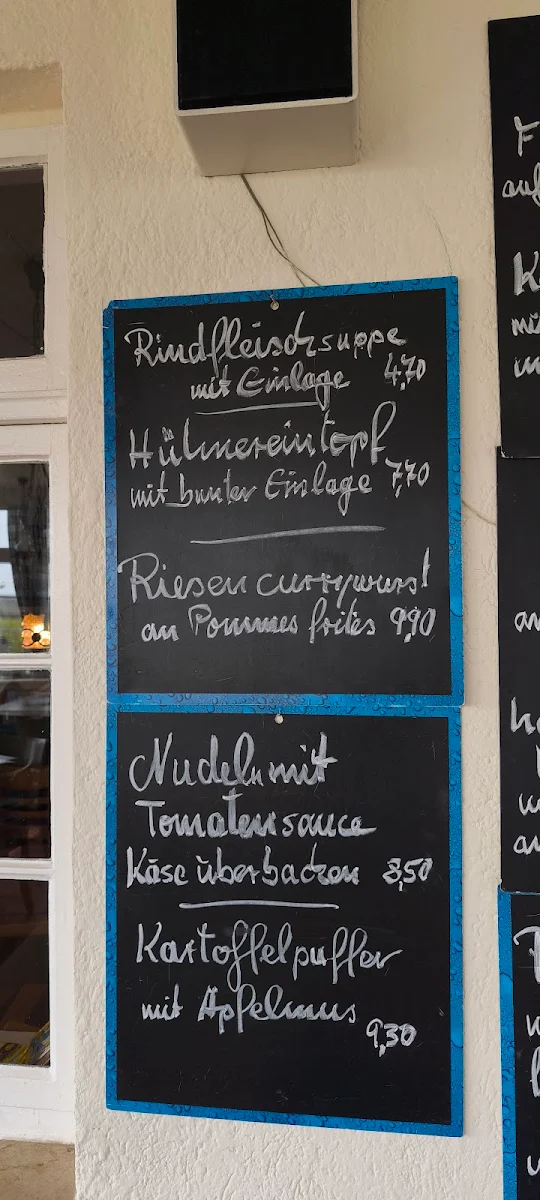 Rindfleischsuppe
mit Einlage 4,70
Hühnereintopf
mit bunter Einlage 7,70
Riesencurrywurst
an Pommes frites 9,90
Nudeln mit
Tomatensauce
Käse überbacken 8,50
Kartoffelpuffer
mit Äpfelmus
9,30